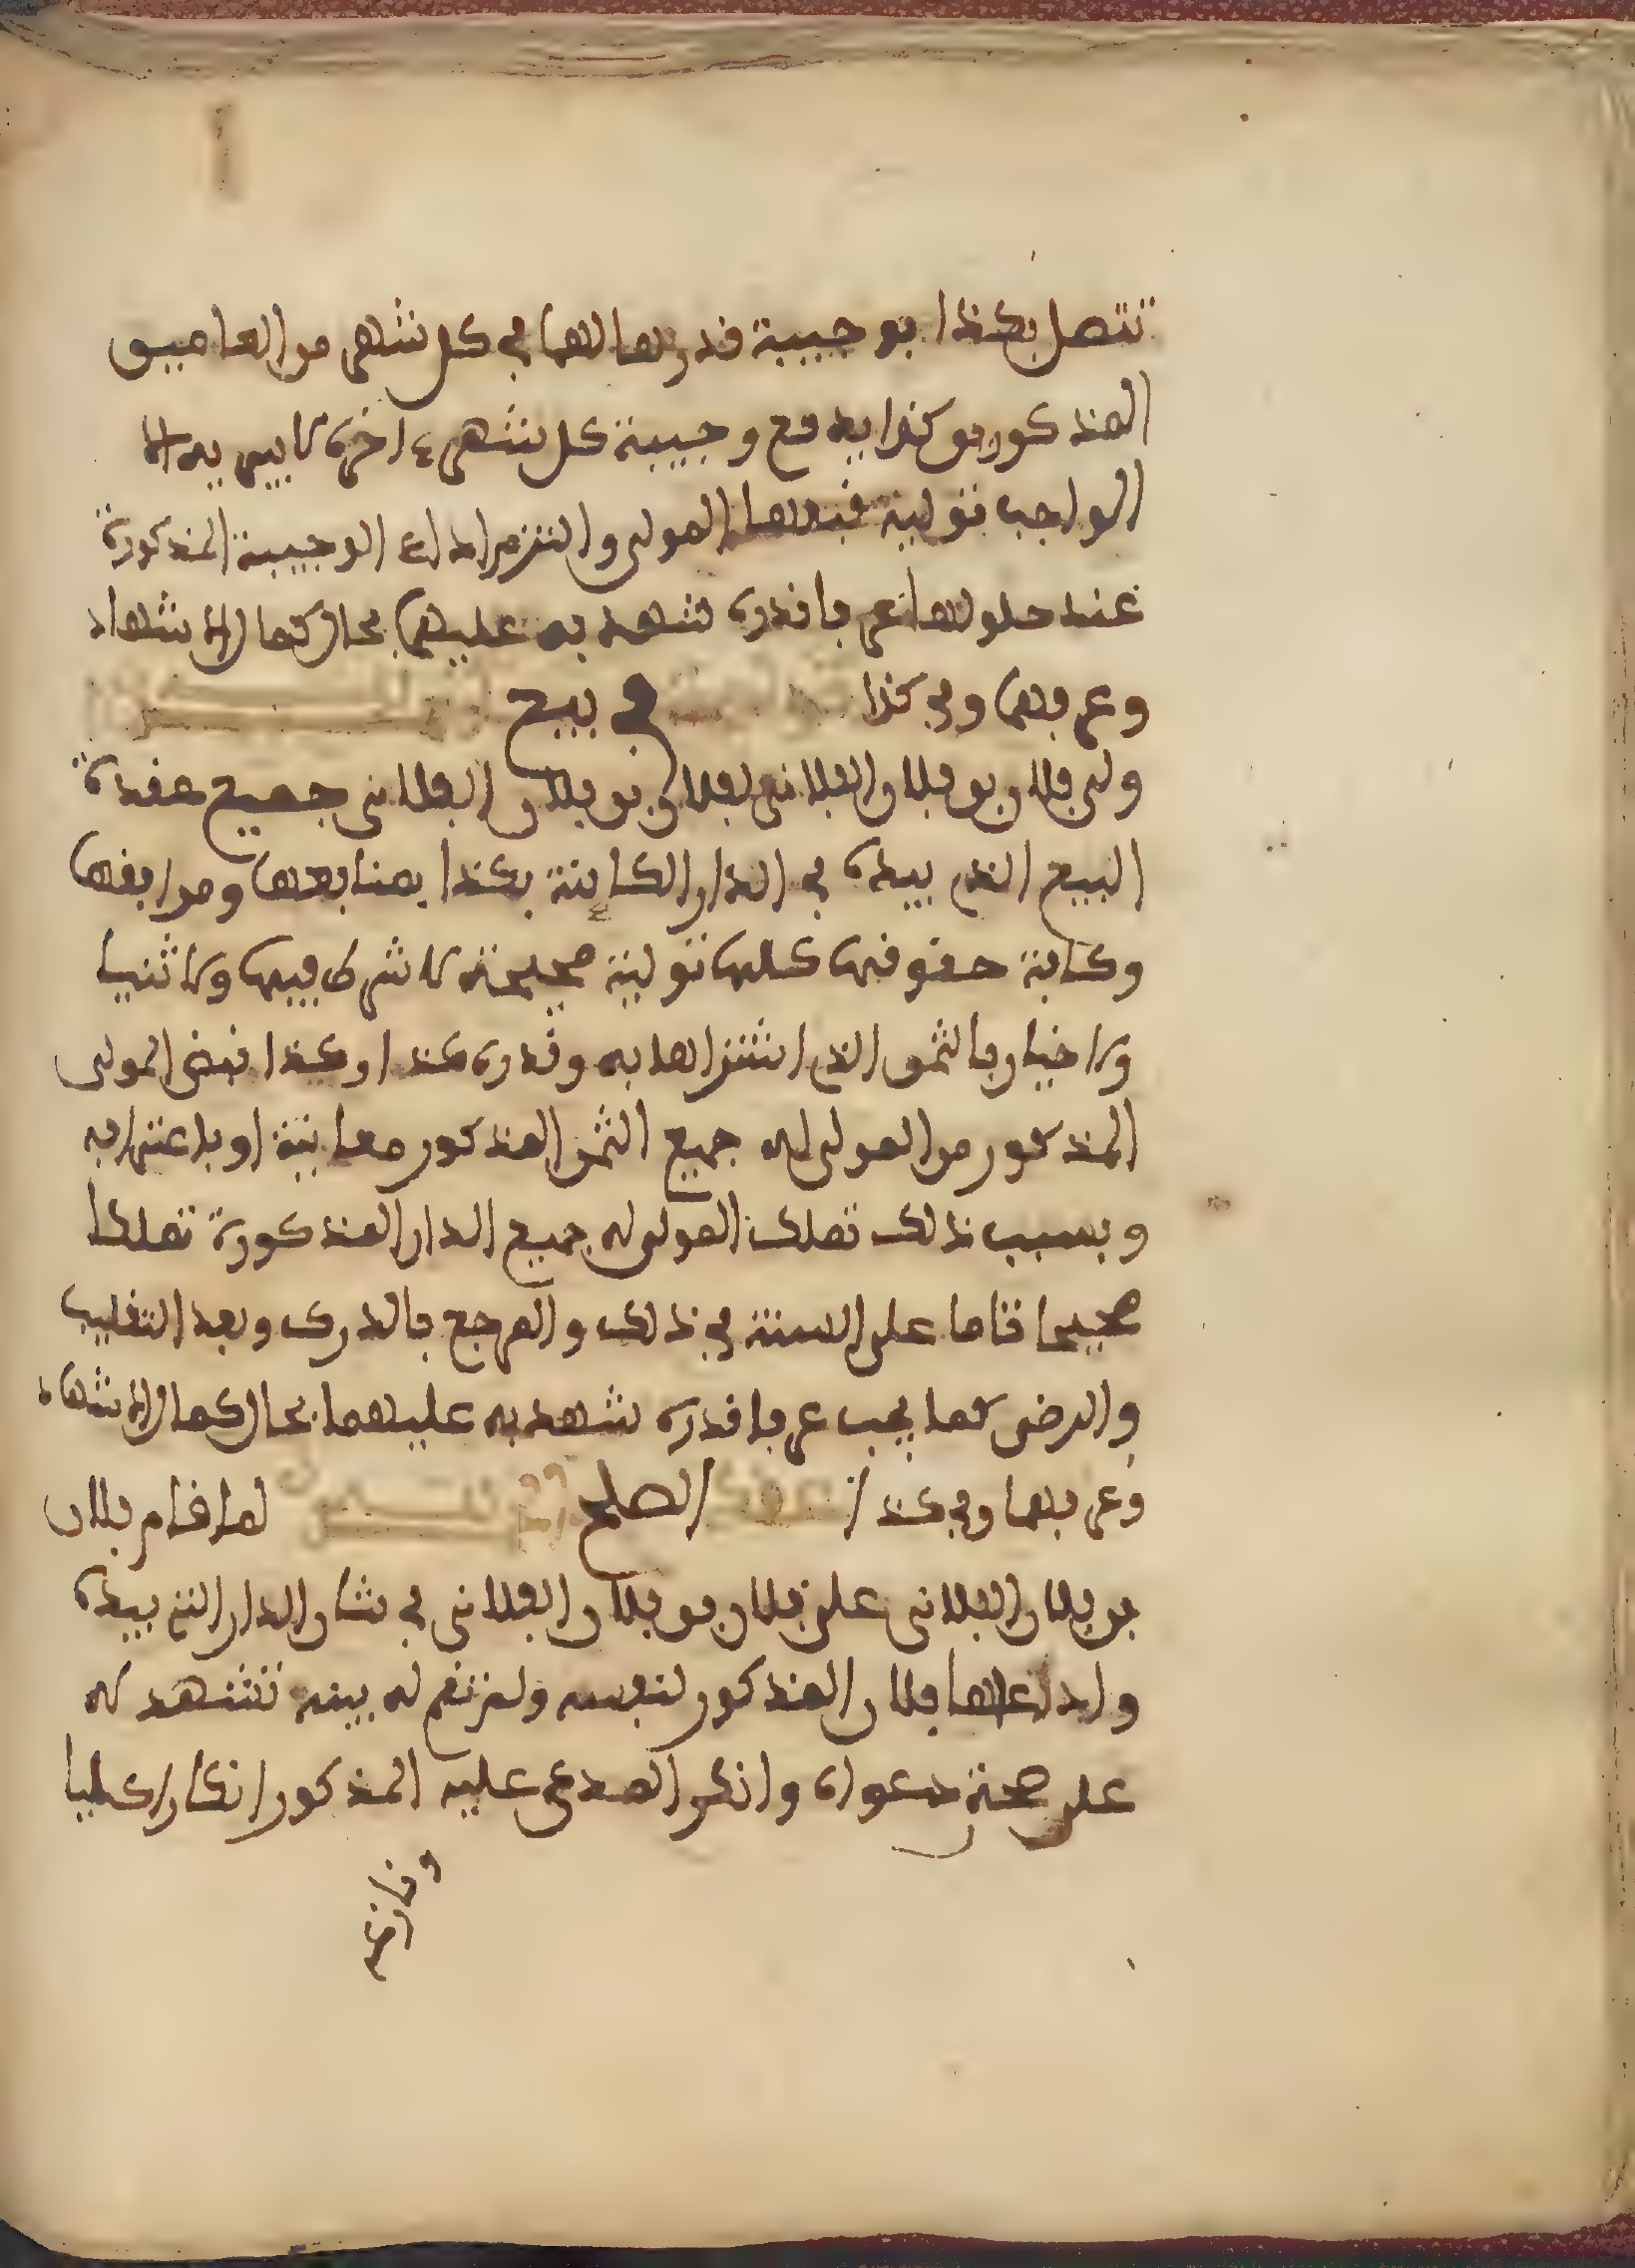 تتصل بكذا بوجيبة قدرها لهما في كل شهر من العامين
المذكورين كذا يدفع وجيبة كل شهر ءاخره لا يبريه الا
الواجب تولية قبلها المولى والتزم اداء الوجيبة المذكورة
عند حلولها عرفا قدره شهد به عليهما بحال كمال الاشهاد
وعرفهما وفي كذا في بيع
ولى فلان بن فلان الفلاني لفلان بن فلان الفلاني جميع عقدة
البيع الذي بيده في الدار الكاينة بكذا بمنافعها ومرافقها
وكافة حقوقها كلها تولية صحيحة لا شرط فيها ولا ثنيا
ولا خيار بالثمن الذي اشتراها به وقدره كذا وكذا قبض المولى
المذكور من المولى له جميع الثمن المذكور معاينة او باعترافه
وبسبب ذلك تملك المولى له جميع الدار المذكورة تملكا
صحيحا تاما على السنة في ذلك والمرجع بالدرك وبعد التقليب
والرضى كما يجب عرفا قدره شهد به عليهما بحال كمال الاشهاد
وعرفهما وفي كذا الصلح لما قام فلان
بن فلان الفلاني على فلان بن فلان الفلاني في شان الدار التي بيده
وادعاها فلان المذكور لنفسه ولم تقم له بينة تشهد له
على صحة دعواه وانكر المدعى عليه المذكور انكارا كليا